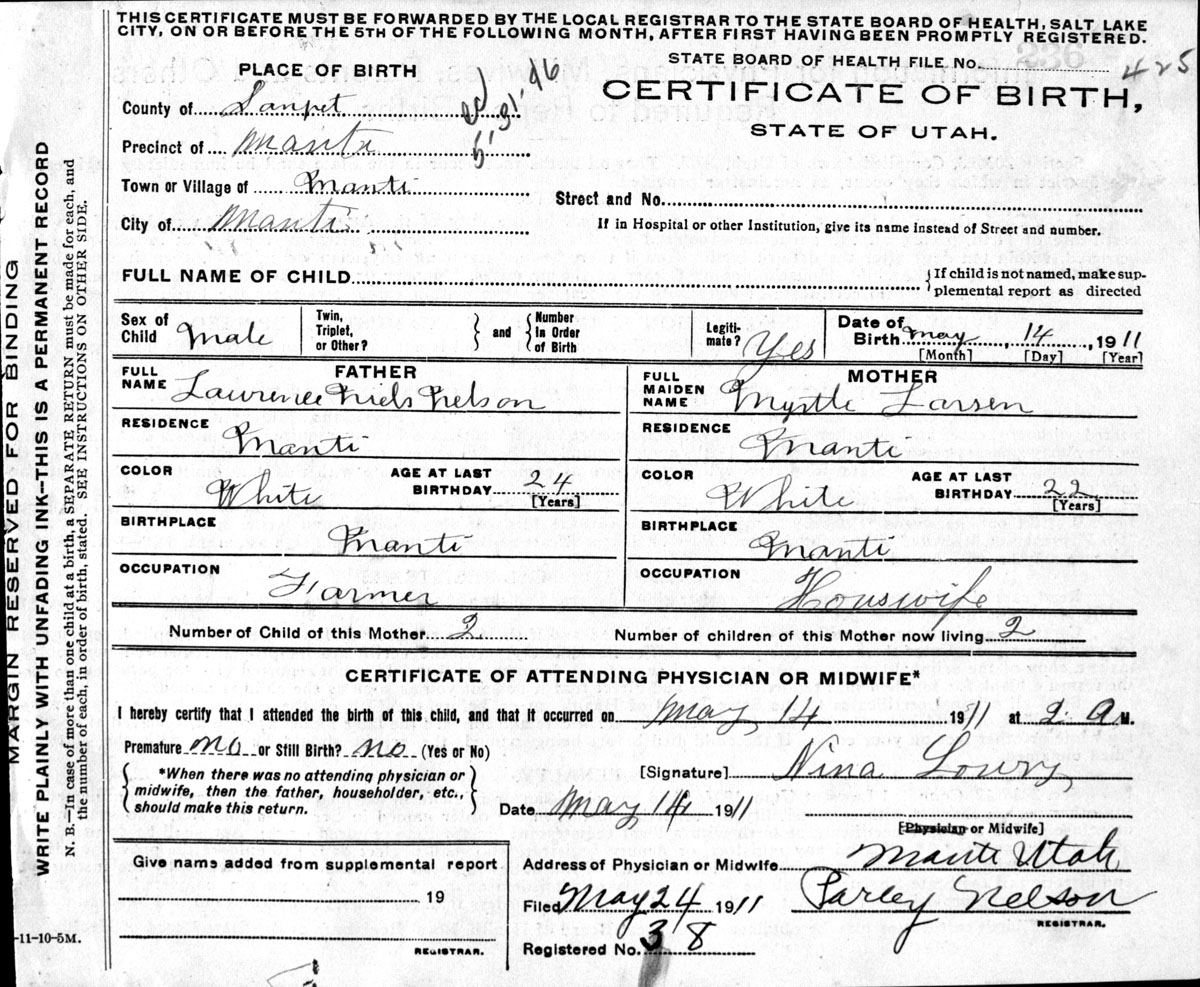 THIS CERTIFICATE MUST BE FORWARDED BY THE LOCAL REGISTRAR TO THE STATE BOARD OF HEALTH, SALT LAKE
CITY, ON OR BEFORE THE 5TH OF THE FOLLOWING MONTH, AFTER FIRST HAVING BEEN PROMPTLY REGISTERED.
STATE BOARD OF HEALTH FILE No. 425
PLACE OF BIRTH
CERTIFICATE OF BIRTH,
STATE OF UTAH.
County of Sanpet
5-31-46
Precinct of Manti
Town or Village of Manti
Street and No.
City of Manti
If in Hospital or other Institution, give its name Instead of Street and number.
FULL NAME OF CHILD
{If child is not named, make sup-
plemental report as directed
Sex of Child Male
Twin, Triplet, or Other?
and
Number in Order of Birth
Legiti-mate? Yes
Date of Birth May 14, 1911
[Month] [Day] [Year]
FATHER
FULL NAME Lawrence Niels Nelson
RESIDENCE Manti
COLOR White
AGE AT LAST BIRTHDAY 24
[Years]
BIRTHPLACE Manti
OCCUPATION Farmer
MOTHER
FULL MAIDEN NAME Myrtle Larsen
RESIDENCE Manti
COLOR White
AGE AT LAST BIRTHDAY 22
[Years]
BIRTHPLACE Manti
OCCUPATION Houswife
Number of Child of this Mother 2
Number of children of this Mother now living 2
CERTIFICATE OF ATTENDING PHYSICIAN OR MIDWIFE*
I hereby certify that I attended the birth of this child, and that it occurred on May 14 1911 at 2 A M.
Premature no or Still Birth? no (Yes or No)
{*When there was no attending physician or
midwife, then the father, householder, etc.,
should make this return.}
[Signature] Nina Lowry
Date May 14 1911
[Physician or Midwife]
Give name added from supplemental report
19
REGISTRAR.
Address of Physician or Midwife Manti Utah
Filed May 24 1911 Parley Nelson
REGISTRAR.
Registered No. 38
-11-10-5M.
MARGIN RESERVED FOR BINDING
WRITE PLAINLY WITH UNFADING INK—THIS IS A PERMANENT RECORD
N. B.—In case of more than one child at a birth, a SEPARATE RETURN must be made for each, and
the number of each, in order of birth, stated. SEE INSTRUCTIONS ON OTHER SIDE.